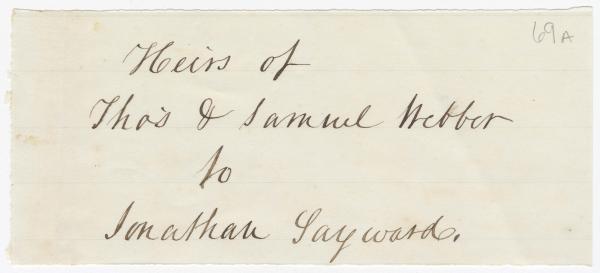 69A
Heirs of
Tho's & Samuel Webber
to
Jonathan Sayward.